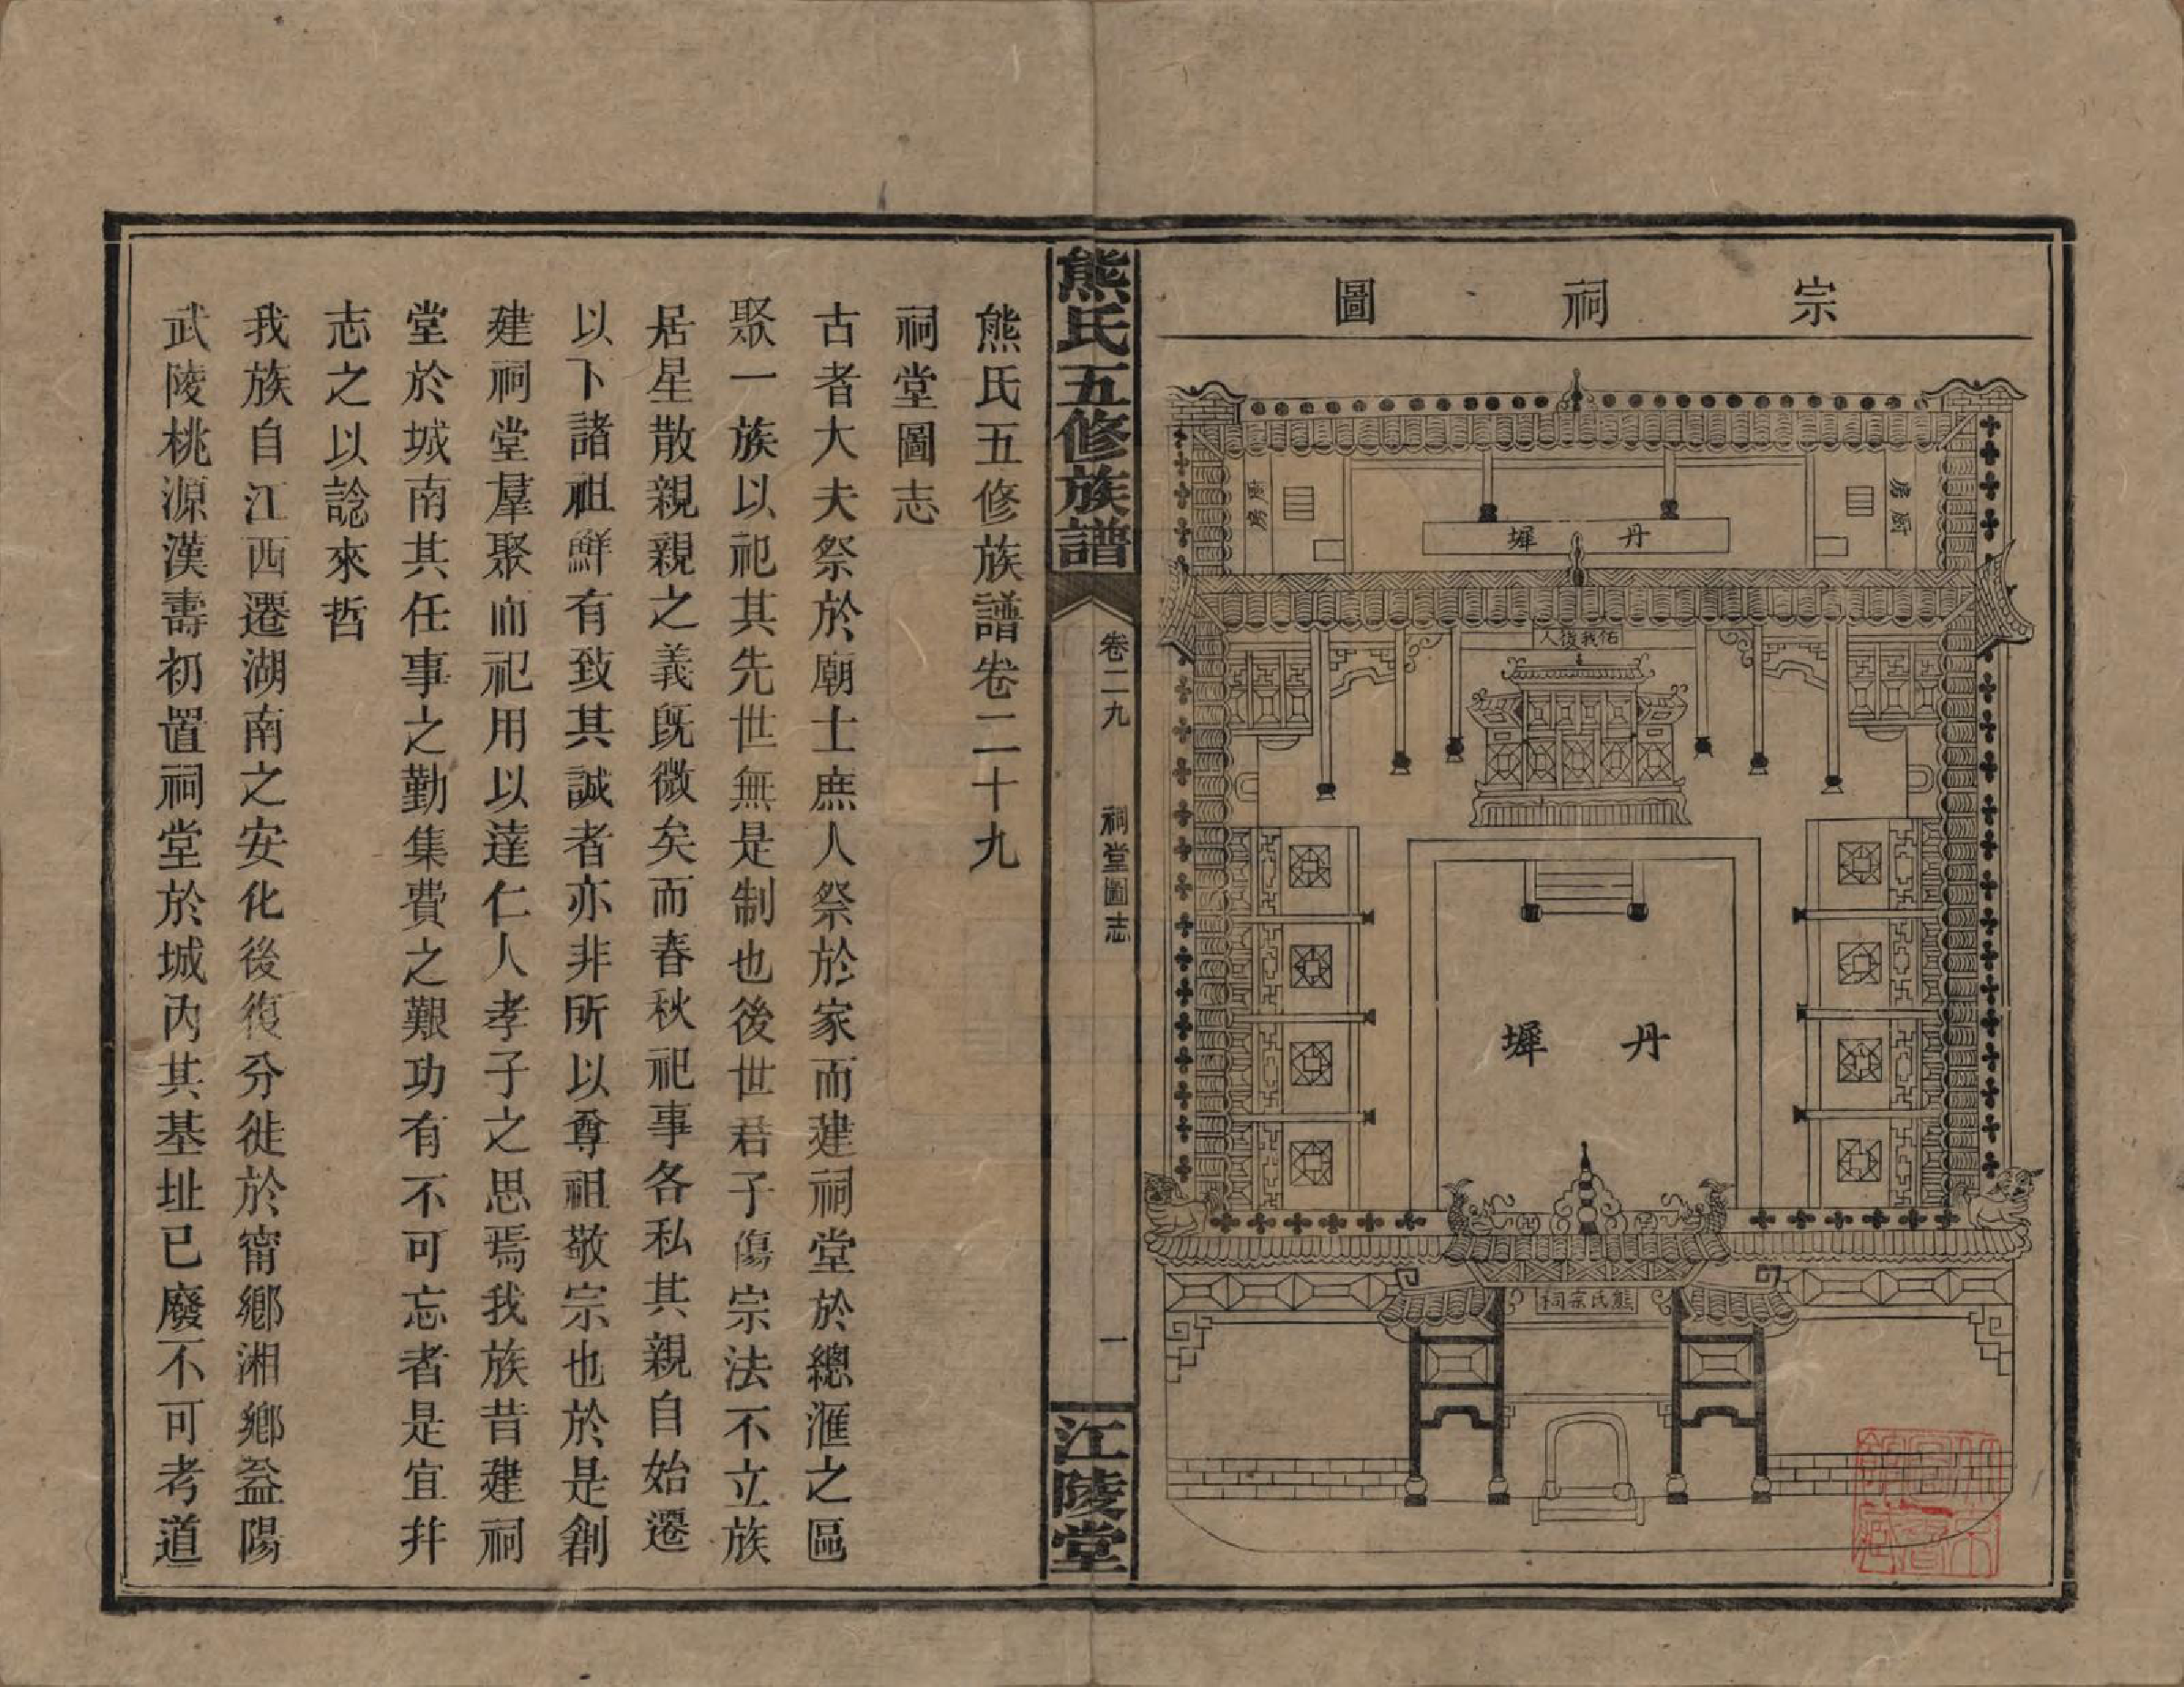 宗祠圖
廚房
廚房
丹墀
佑我後人
丹墀
熊氏宗祠
熊氏五修族譜
卷二九
祠堂圖志
一
江陵堂
熊氏五修族譜卷二十九
祠堂圖志
古者大夫祭於廟士庶人祭於家而建祠堂於總滙之區
聚一族以祀其先世無是制也後世君子傷宗法不立族
居星散親親之義既微矣而春秋祀事各私其親自始遷
以下諸祖鮮有致其誠者亦非所以尊祖敬宗也於是創
建祠堂羣聚而祀用以達仁人孝子之思焉我族昔建祠
堂於城南其任事之勤集費之艱功有不可忘者是宜幷
志之以諗來哲
我族自江西遷湖南之安化後復分徙於甯鄉湘鄉益陽
武陵桃源漢壽初置祠堂於城內其基址已廢不可考道